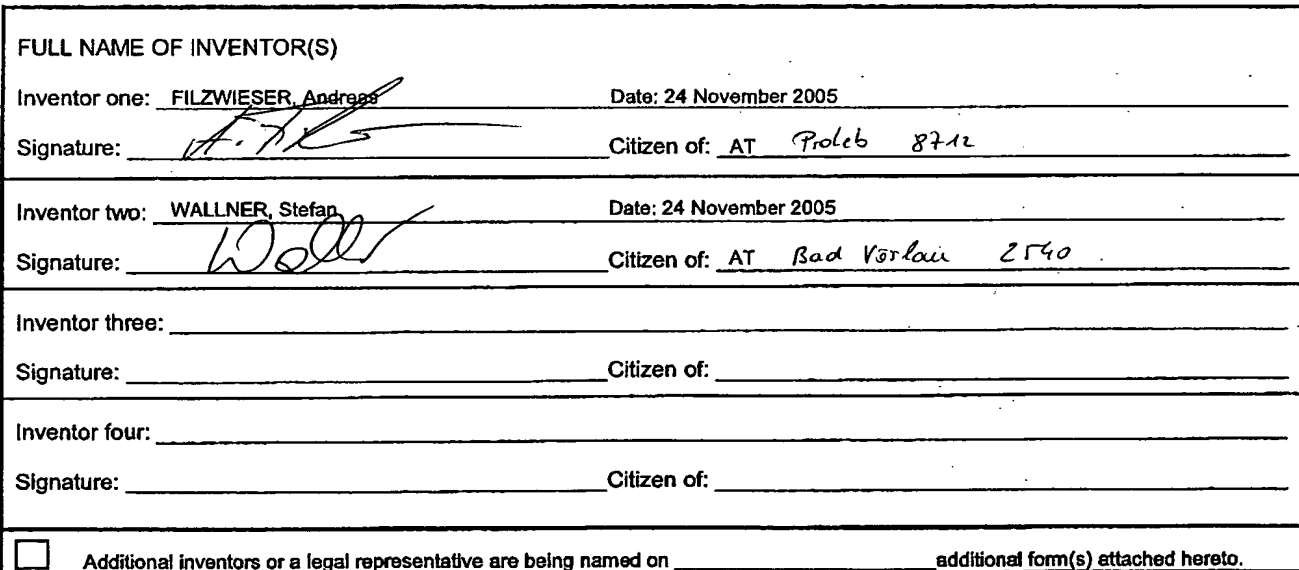 FULL NAME OF INVENTOR(S)
Inventor one: FILZWIESER, Andreas Date: 24 November 2005
Signature: Citizen of: AT Proleb 8712
Inventor two: WALLNER, Stefan Date: 24 November 2005
Signature: Citizen of: AT Bad Vöslau 2540
Inventor three:
Signature: Citizen of:
Inventor four:
Signature: Citizen of:
Additional inventors or a legal representative are being named on additional form(s) attached hereto.